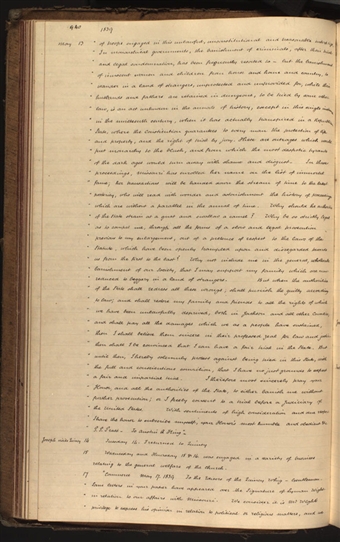 940 1839
May 17 " of troops engaged in this unlawful, unconstitutional and treasonable
" In monarchical governments, the banishment of criminals, after their
" and legal condemnation, has been frequently resorted to - but the banishment
" of innocent women and children from house and home and country, to
" wander in a land of strangers, unprotected and unprovided for, while their
" husbands and fathers are retained in dungeons, to be tried by some other
" law, is an act unknown in the annals of history, except in this single
" in the nineteenth century, when it has actually transpired in a Republican
" State, where the Constitution guarantees to every man the protection of life
" and property, and the right of trial by jury. These are outrages which would
" put monarchy to the blush, and from which the most despotic tyrants
" of the dark ages would turn away with shame and disgust. In these
" proceedings, Missouri has enrolled her name on the list of immortal
" fame, her transactions will be handed down the stream of time to the latest
" posterity, who will read with wonder and astonishment the history of proceedings
" which are without a parallel in the annals of time. Why should the authorities
" of the State strain at a gnat and swallow a camel? Why be so strictly legal
" as to compel me, through all the forms of a slow and legal prosecution
" previous to my enlargement, out of a pretence of respect to the laws of the
" State, which have been openly trampled upon and disregarded towards
" us from the first to the last? Why not include me in the general, wholesale
" banishment of our Society, that I may support my family which are now
" reduced to beggary in a land of strangers. But when the authorities
" of the State shall redress all these wrongs; shall punish the guilty according
" to law; and shall restore my family and friends to all the rights of which
" we have been unlawfully deprived, both in Jackson and all other Counties,
" and shall pay all the damages which we as a people have sustained,
" then I shall believe them sincere in their professed zeal for law and
" then shall I be convinced that I can have a fair trial in the State. But
" until then I hereby solemnly protest against being tried in this State, with
" the full and conscientious conviction, that I have no just grounds to expect
" a fair and impartial trial. I therefore most sincerely pray your
" Honor, and all the authorities of the State, to either banish me without
" further prosecution; or I freely consent to a trial before a Judiciary of
" the United States. With sentiments of high consideration and due respect
" I have the honor to subscribe myself, your Honor's most humble and obedient
" P. P. Pratt. To Austin A. King".
16 Thursday 16. I returned to Quincy
18 was engaged in a variety of business
relating to the general welfare of the church.
17 " Commerce May 17, 1839 To the Editors of the Quincy Whig - Gentlemen
" Some letters in your paper have appeared over the signature of Lyman Wight
" in relation to our affairs with Missouri. We consider it is Mr Wight's
" privilege to express his opinion in relation to political or religious matters, and we